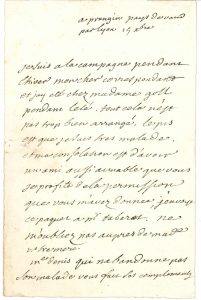 a prangin pays de vaud
par lyon 15 xbre
je suis a la campagne pendant
lhiver mon cher correspondant
et jay eté chez madame goll
pendant leté. tout cela n'est
pas trop bien arrangé. le pis
est que je suis tres malade.
et ma consolation est d'avoir
un ami aussi aimable que vous
je profite de la permission
que vous mavez donnée jenvoye
ce paquet a mr tabaret. ne
m'oubliez pas aupres de mad.
me denis qui ne abandonne pas
son malade vous fait ses compliments